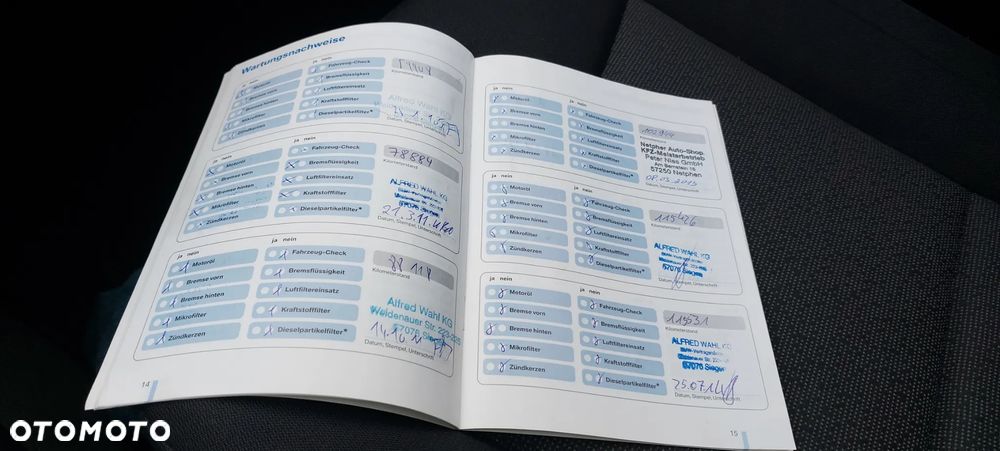 Wartungsnachweise
ja nein
Motoröl
Bremse vorn
Bremse hinten
Mikrofilter
Zündkerzen
ja nein
Fahrzeug-Check
Bremsflüssigkeit
Luftfiltereinsatz
Kraftstofffilter
Dieselpartikelfilter*
Kilometerstand
Alfred Wahl KG
Datum, Stempel, Unterschrift
ja nein
Motoröl
Bremse vorn
Bremse hinten
Mikrofilter
Zündkerzen
ja nein
Fahrzeug-Check
Bremsflüssigkeit
Luftfiltereinsatz
Kraftstofffilter
Dieselpartikelfilter*
78884
Kilometerstand
ALFRED WAHL KG
57076 Siegen
21.3.11
Datum, Stempel, Unterschrift
ja nein
Motoröl
Bremse vorn
Bremse hinten
Mikrofilter
Zündkerzen
ja nein
Fahrzeug-Check
Bremsflüssigkeit
Luftfiltereinsatz
Kraftstofffilter
Dieselpartikelfilter*
88118
Kilometerstand
Alfred Wahl KG
Weidenauer Str. 223-225
57076 Siegen
14.10.11
Datum, Stempel, Unterschrift
14
ja nein
Motoröl
Bremse vorn
Bremse hinten
Mikrofilter
Zündkerzen
ja nein
Fahrzeug-Check
Bremsflüssigkeit
Luftfiltereinsatz
Kraftstofffilter
Dieselpartikelfilter*
Kilometerstand
Netpher Auto-Shop
KFZ-Meisterbetrieb
Peter Nies GmbH
57250 Netphen
08.03.2013
Datum, Stempel, Unterschrift
ja nein
Motoröl
Bremse vorn
Bremse hinten
Mikrofilter
Zündkerzen
ja nein
Fahrzeug-Check
Bremsflüssigkeit
Luftfiltereinsatz
Kraftstofffilter
Dieselpartikelfilter*
115426
Kilometerstand
ALFRED WAHL KG
57076 Siegen
Datum, Stempel, Unterschrift
ja nein
Motoröl
Bremse vorn
Bremse hinten
Mikrofilter
Zündkerzen
ja nein
Fahrzeug-Check
Bremsflüssigkeit
Luftfiltereinsatz
Kraftstofffilter
Dieselpartikelfilter*
115531
Kilometerstand
ALFRED WAHL KG
57076 Siegen
25.07.14
Datum, Stempel, Unterschrift
15
OTOMOTO